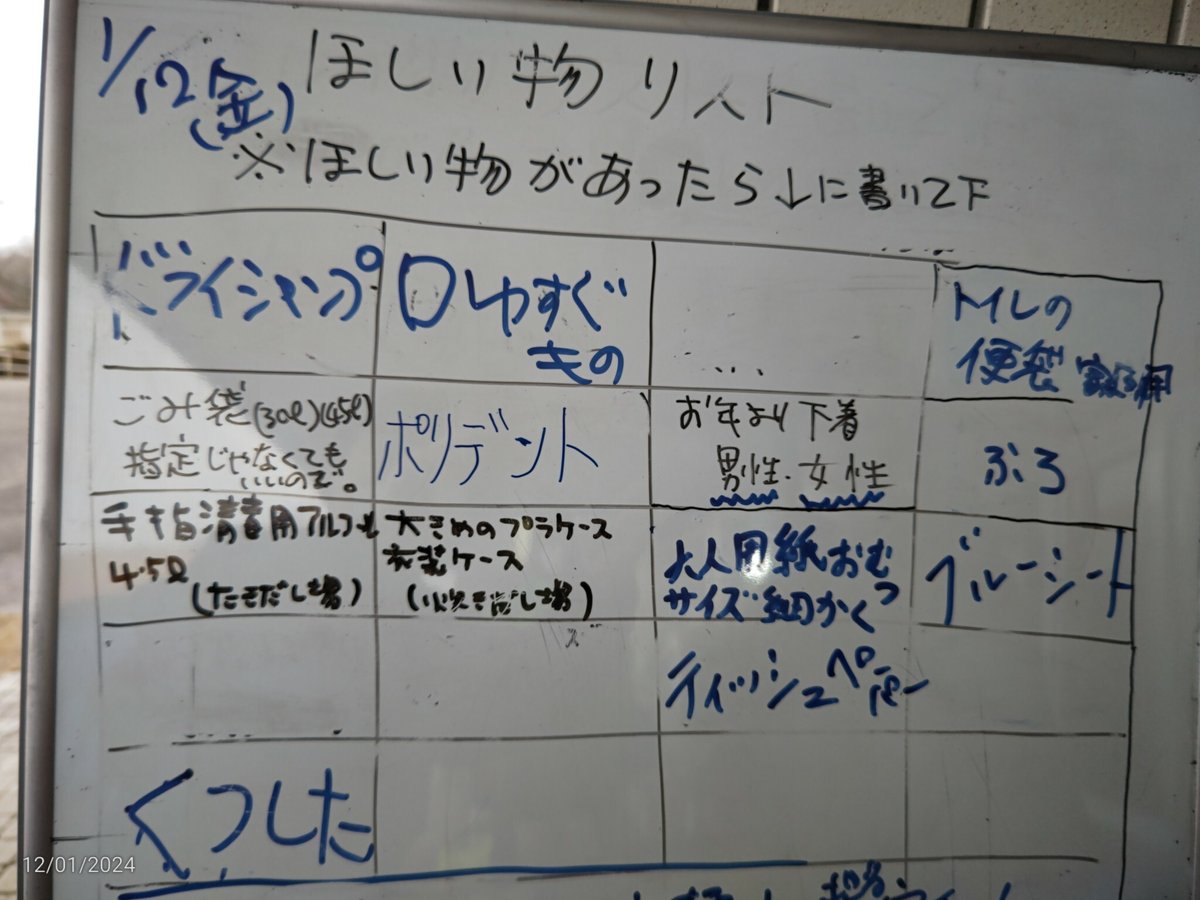 1/12(金) ほしい物リスト
※ほしい物があったら↓に書いて下
ドライシャンプ
口ゆすぐ
もの
...
トイレの
便袋 家庭用
ごみ袋(30ℓ)(45ℓ)
指定じゃなくても
いいので。
ポリデント
お年より下着
男性・女性
ふろ
手指消毒用アルコール
4.5ℓ
(たきだし場)
大きめのプラケース
衣装ケース
(炊き出し場)
大人用紙おむ
サイズ細かく
つ
ブルーシート
ティッシュペーパー
くつした
12/01/2024